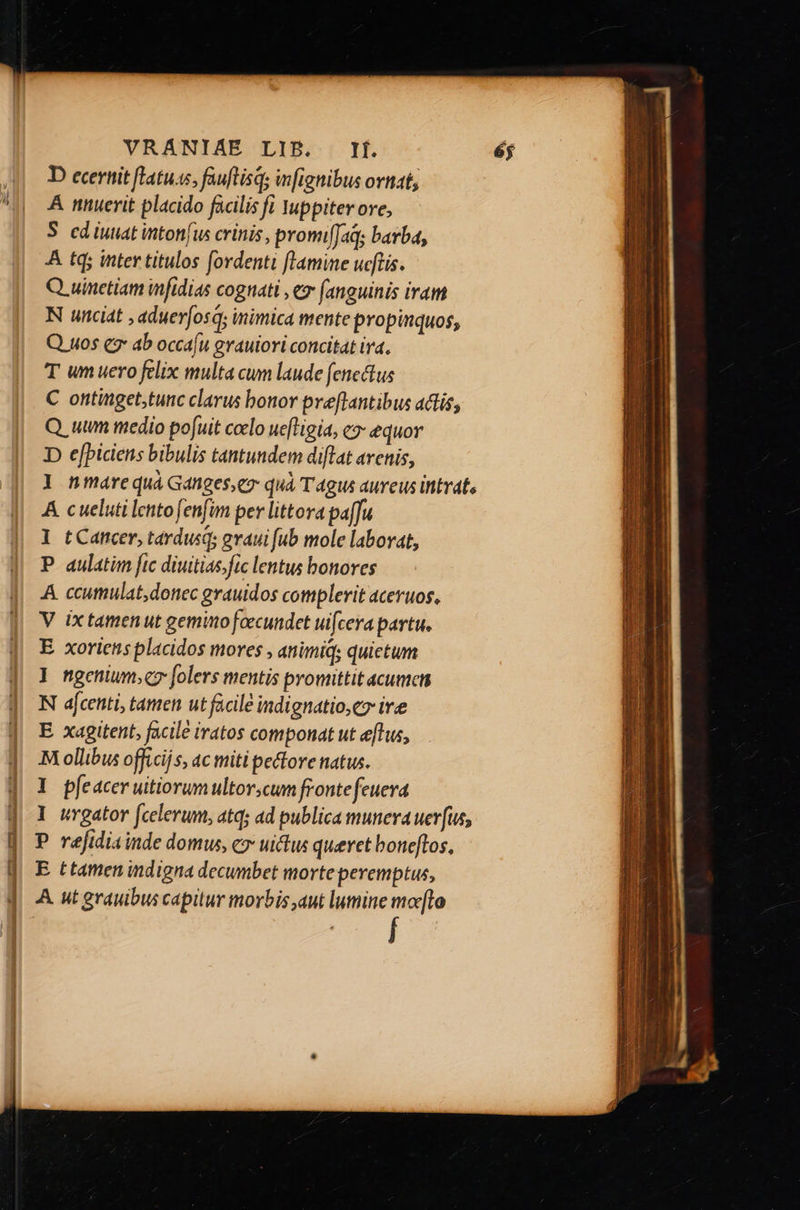 VRANIAE LIB. II. 65
D ecernit ſtatuas, fauſtisq; inſignibus ornat,
A nnuerit placido facilis ſi Iuppiter ore,
S ed iuuat intonſus crinis, promiſſaq; barba,
A tq; inter titulos ſordenti ſtamine ueſtis.
Q uinetiam inſidias cognati, & ſanguinis iram
N unciat, aduerſosq; inimica mente propinquos,
Q uos & ab occaſu grauiori concitat ira.
T um uero felix multa cum laude ſenectus
C ontinget, tunc clarus honor præſtantibus actis,
Q uum medio poſuit cœlo ueſtigia, & æquor
D eſpiciens bibulis tantundem diſtat arenis,
I n mare quà Ganges, & quà Tagus aureus intrat.
A c ueluti lento ſenſim per littora paſſu
I t Cancer, tardusq; graui ſub mole laborat,
P aulatim ſic diuitias, ſic lentus honores
A ccumulat, donec grauidos complerit aceruos.
V ix tamen ut gemino fœcundet uiſcera partu.
E xoriens placidos mores, animiq; quietum
I ngenium, & ſolers mentis promittit acumen
N aſcenti, tamen ut facile indignatio, & iræ
E xagitent, facile iratos componat ut æſtus,
M ollibus officijs, ac miti pectore natus.
I pſe acer uitiorum ultor, cum fronte ſeuera
I urgator ſcelerum, atq; ad publica munera uerſus,
P ræſidia inde domus, & uictus quæret honeſtos.
E t tamen indigna decumbet morte peremptus,
A ut grauibus capitur morbis, aut lumine mœſto
ſ